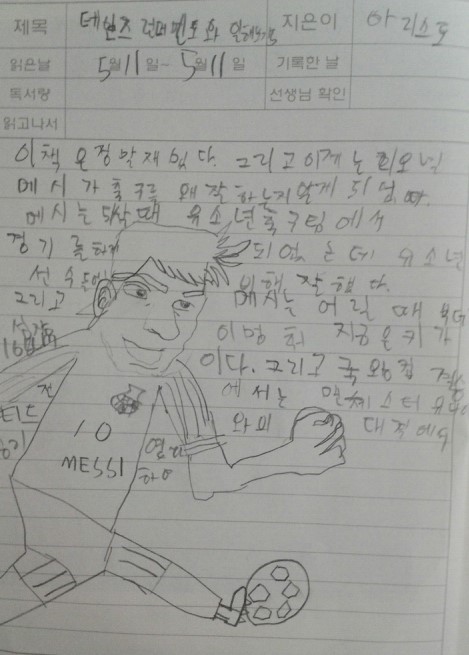 제목 지은이 아리스토
읽은날 5월 11일~ 5월 11일 기록한 날
독서량 선생님 확인
읽고나서
이 책은 정말 재밌다. 그리고 이제는 리오넬
메시가 축구를 왜 잘하는지 알게 되었다.
메시는 5살 때 유소년 축구팀에서
경기를 하게 되었는데 유소년
선수들에 잘했다.
그리고 메시는 어릴 때부터
이 멈춰 지금은 키가
16
이다. 그리고 국왕컵
에서는 맨체스터 유나이
티드 전 와의 대결에서
10
MESSI